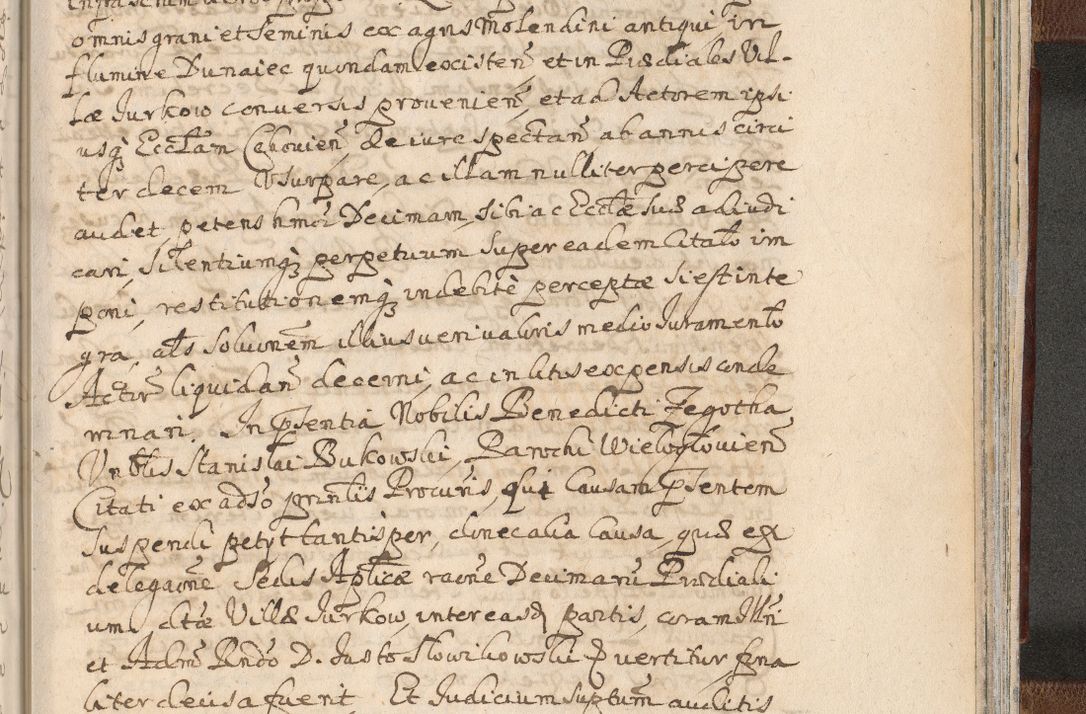 omnis grani et Seminis ex agris Molendini antiqui in
flumine Dunaiec quondam existen̄ et in Prædiales Vil-
læ Jurkow conversis provenien̄, et ad Actorem ipsi
usq̃ Eccłam Cebovien̄, de iure spectan̄ ab annis circi
ter decem Usurpare, ac illam nulliter percipere
audet, petens hmōi Decimam, sibi ac Ecctæ suæ adiudi
cari, Silentiumq̃ perpetuum super eadem Citato im
poni, restitutionemq̃ indebitè perceptæ si est inte
gra, als Solutionēm illius veri valoris medio Juramento
Actoris liquidan̄ decerni, ac in litis expensis conde
mnari. In p̄sentia Nobilis Benedicti Zegotha
Vnblis Stanislai Bukowski, Parochi Wielogłovien̄
Citati ex adso prñlis Procuris, qui Causam p̄sentem
suspendi petyt tantisper, donec alia Causa, quæ ex
delegaōne Sedis Apłicæ raōne Decimarū Prædiali
um dctæ Villæ Jurkow, inter easd partis, coram Illn̄
et Adm̄ Rndo D. Justo Słowikowski vertitur fina
liter decisa fuerit Et Judicium suptum auditis